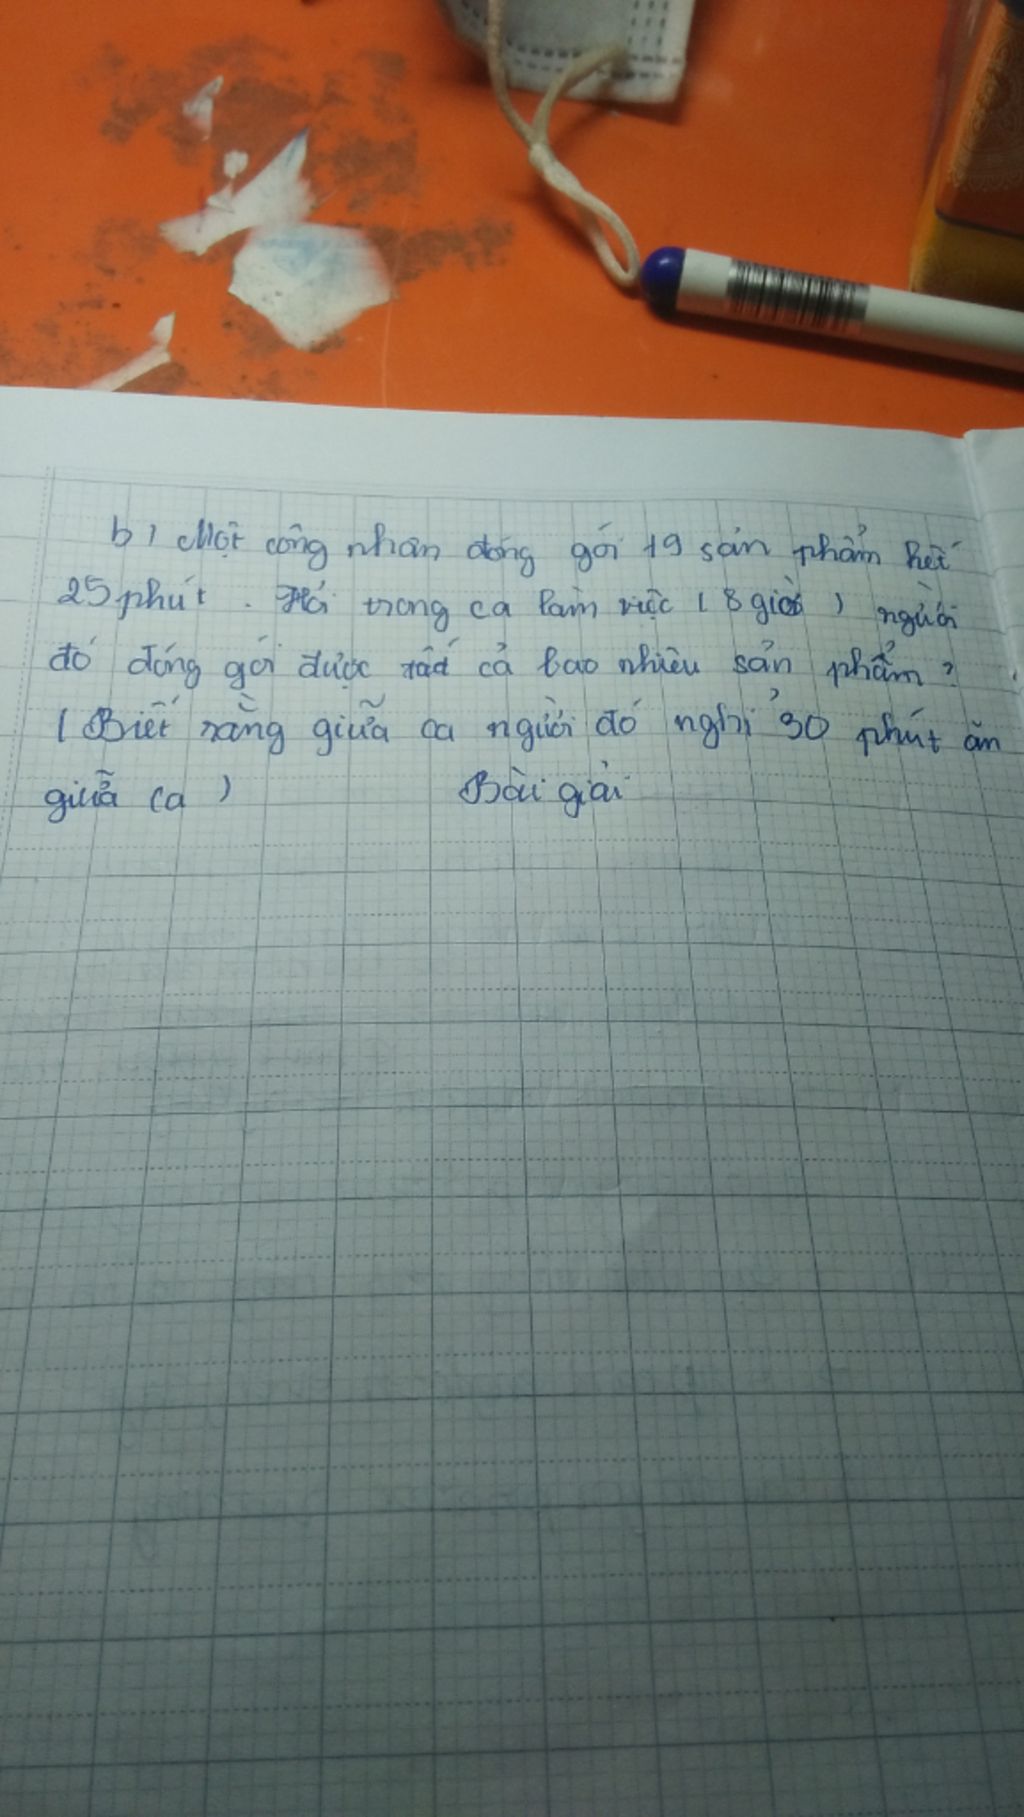 b) Một công nhân đóng gói 19 sản phẩm hết
25 phút. Hỏi trong ca làm việc (8 giờ) người
đó đóng gói được tất cả bao nhiêu sản phẩm?
(Biết rằng giữa ca người đó nghỉ 30 phút ăn
giữa ca) Bài giải